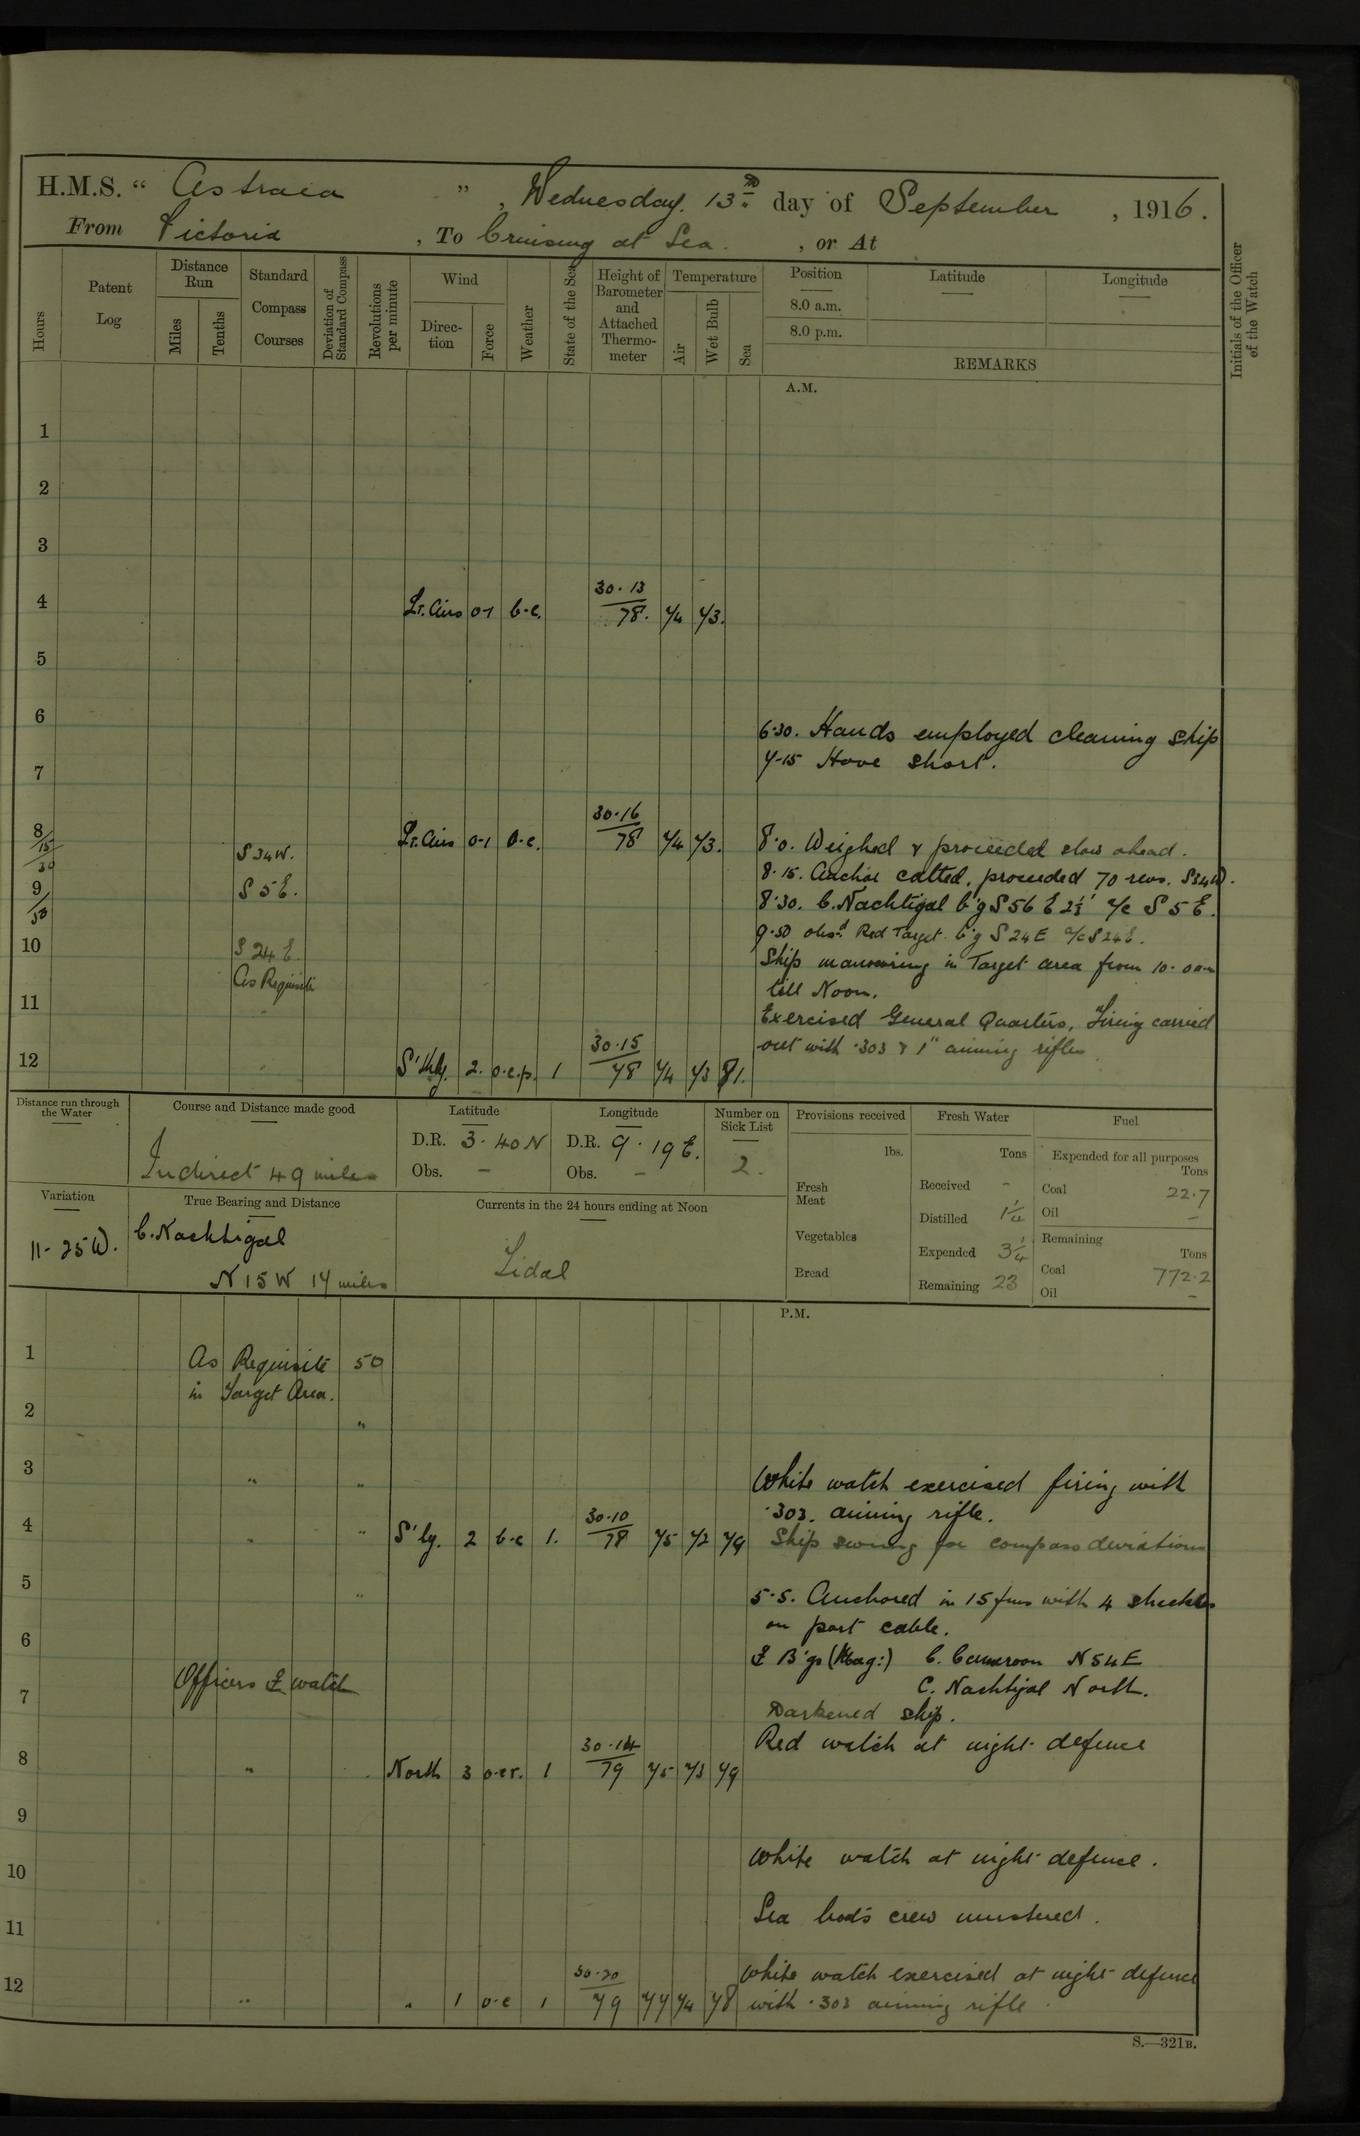 H.M.S. " Astraea ", Wednesday. 13th day of September, 1916.
From Victoria, To Cruising at Sea., or At
Hours
Patent Log
Distance Run
Miles
Tenths
Standard Compass Courses
Deviation of Standard Compass
Revolutions per minute
Wind
Direction
Force
Weather
State of the Sea
Height of Barometer and Attached Thermometer
Temperature
Air
Wet Bulb
Sea
Position
8.0 a.m.
8.0 p.m.
Latitude
Longitude
REMARKS
Initials of the Officer of the Watch
A.M.
1
2
3
4 Lt. Airs 0-1 b.c. 30.13 78. 74 73.
5
6
6.30. Hands employed cleaning ship
7
7-15 Hove short.
8 Lt. Airs 0-1 o.c. 30.16 78 74 73. 8.0. Weighed & proceeded slow ahead.
15 S 34 W.
30
8.15. Anchor catted, proceeded 70 revs. S34W.
9 S 5 E. 8.30. C. Nachtigal b'g S 56 E 2½' a/c S 5 E.
50
9.50 obsd Red Target b'g S 24 E a/c S 24 E.
10 S 24 E. Ship manovring in Target area from 10.0 am
As Requisite till Noon.
11
Exercised General Quarters, Firing carried
out with .303 & 1" aiming rifles
12 S'thly. 2. o.c.p. 1 30.15 78 74 73 81.
Distance run through the Water
Course and Distance made good
Indirect 49 miles
Latitude
D.R. 3.40 N
Obs. -
Longitude
D.R. 9.19 E.
Obs. -
Number on Sick List
2.
Provisions received
lbs.
Fresh Meat
Vegetables
Bread
Fresh Water
Tons
Received -
Distilled 1¼
Expended 3¼
Remaining 23
Fuel
Expended for all purposes
Tons
Coal 22.7
Oil -
Remaining
Tons
Coal 772.2
Oil -
Variation
11-25 W.
True Bearing and Distance
C. Nachtigal
N 15 W 14 miles
Currents in the 24 hours ending at Noon
Tidal
P.M.
1 As Requisite 50
in Target Area.
2 "
3 " "
White watch exercised firing with
.303. aiming rifle.
4 " " S'ly. 2 b.c 1. 30.10 78 75 72 79 Ship swung for compass deviations
5 "
5.5. Anchored in 15 fms with 4 shackles
on port cable.
6
& B'gs (Mag:) C. Cameroon N 54 E
C. Nachtigal North.
Officers & watch
7
Darkened ship.
Red watch at night defence
8 " North 3 o.c.r. 1 30.14 79 75 73 79
9
10 White watch at night defence.
11 Sea boat's crew mustered.
White watch exercised at night defence
12 " " 1 o.c 1 30.20 79 77 74 78 with .303 aiming rifle
S.—321B.